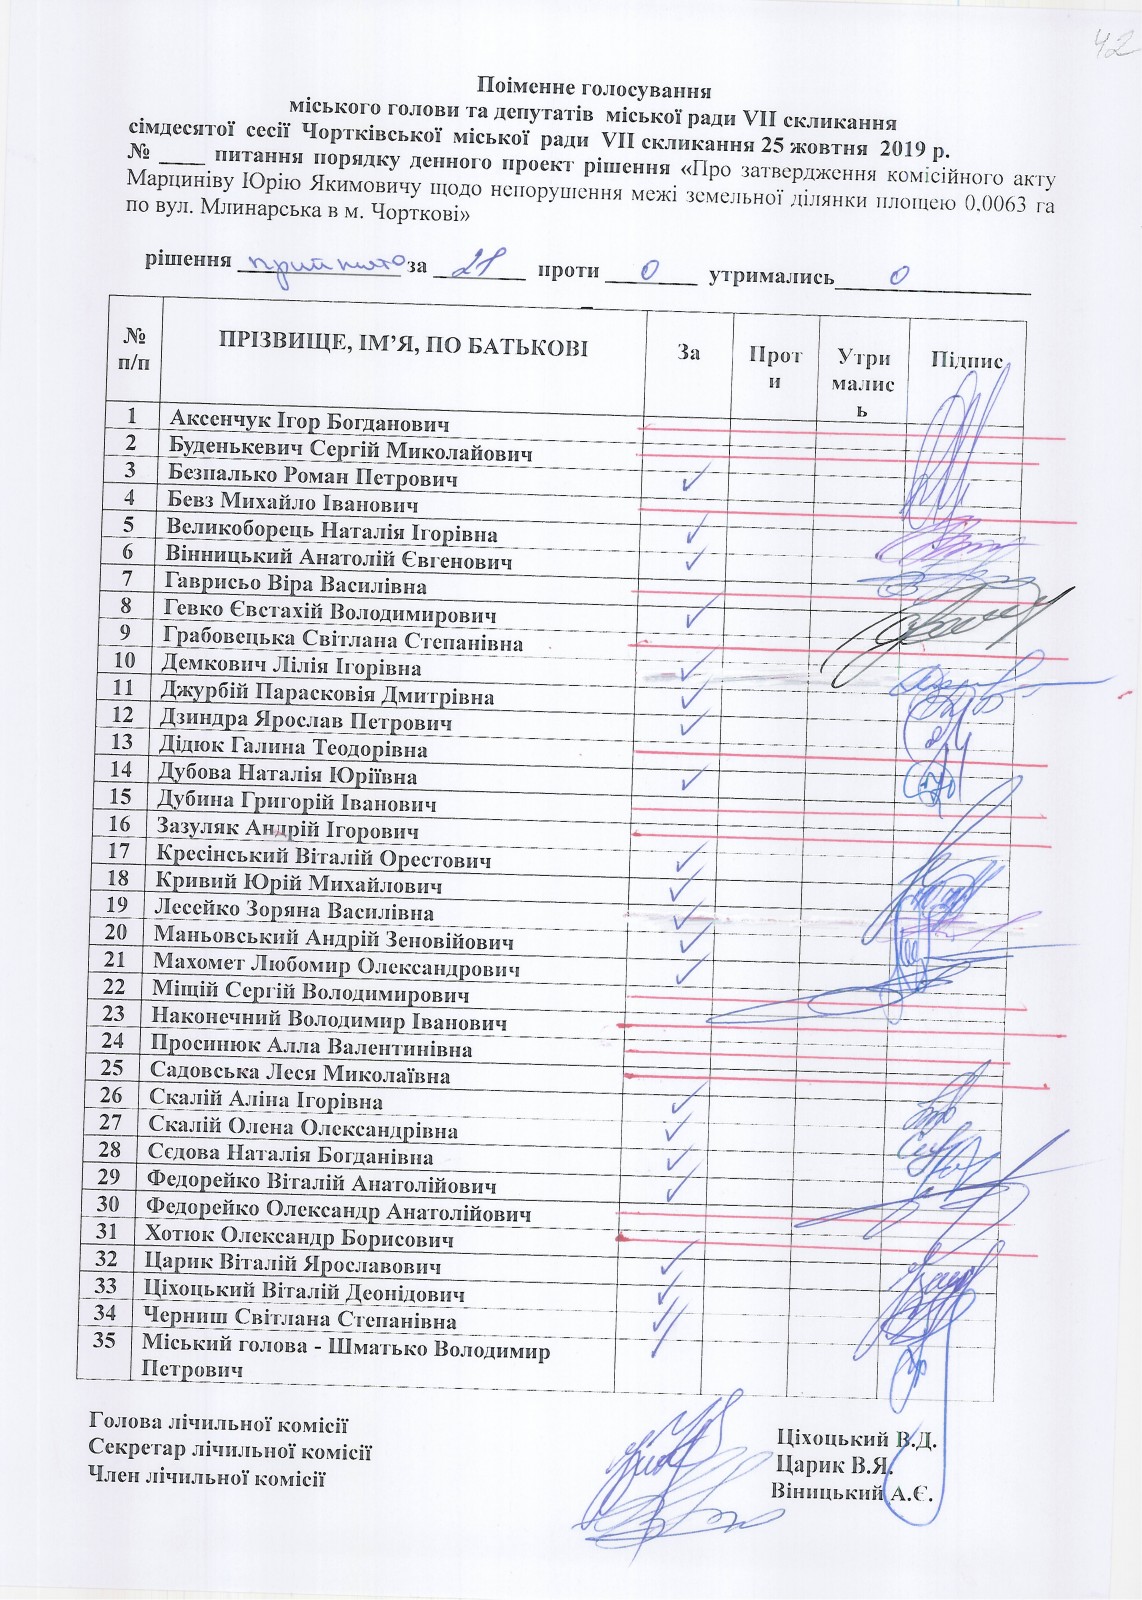 42
Поіменне голосування
міського голови та депутатів міської ради VII скликання
сімдесятої сесії Чортківської міської ради VII скликання 25 жовтня 2019 р.
№ ____ питання порядку денного проект рішення «Про затвердження комісійного акту
Марциніву Юрію Якимовичу щодо непорушення межі земельної ділянки площею 0,0063 га
по вул. Млинарська в м. Чорткові»
рішення прийнято за 21 проти 0 утримались 0
№ п/п ПРІЗВИЩЕ, ІМ’Я, ПО БАТЬКОВІ За Проти Утрималась Підпис
1 Аксенчук Ігор Богданович
2 Буденькевич Сергій Миколайович
3 Безпалько Роман Петрович ✓
4 Бевз Михайло Іванович
5 Великоборець Наталія Ігорівна ✓
6 Вінницький Анатолій Євгенович ✓
7 Гаврисьо Віра Василівна
8 Гевко Євстахій Володимирович ✓
9 Грабовецька Світлана Степанівна
10 Демкович Лілія Ігорівна ✓
11 Джурбій Парасковія Дмитрівна ✓
12 Дзиндра Ярослав Петрович ✓
13 Дідюк Галина Теодорівна
14 Дубова Наталія Юріївна ✓
15 Дубина Григорій Іванович
16 Зазуляк Андрій Ігорович
17 Кресінський Віталій Орестович ✓
18 Кривий Юрій Михайлович ✓
19 Лесейко Зоряна Василівна ✓
20 Маньовський Андрій Зеновійович ✓
21 Махомет Любомир Олександрович ✓
22 Міщій Сергій Володимирович
23 Наконечний Володимир Іванович
24 Просинюк Алла Валентинівна
25 Садовська Леся Миколаївна
26 Скалій Аліна Ігорівна ✓
27 Скалій Олена Олександрівна ✓
28 Сєдова Наталія Богданівна ✓
29 Федорейко Віталій Анатолійович ✓
30 Федорейко Олександр Анатолійович
31 Хотюк Олександр Борисович
32 Царик Віталій Ярославович ✓
33 Ціхоцький Віталій Деонідович ✓
34 Черниш Світлана Степанівна ✓
35 Міський голова - Шматько Володимир ✓
Петрович
Голова лічильної комісії Ціхоцький В.Д.
Секретар лічильної комісії Царик В.Я.
Член лічильної комісії Віницький А.Є.